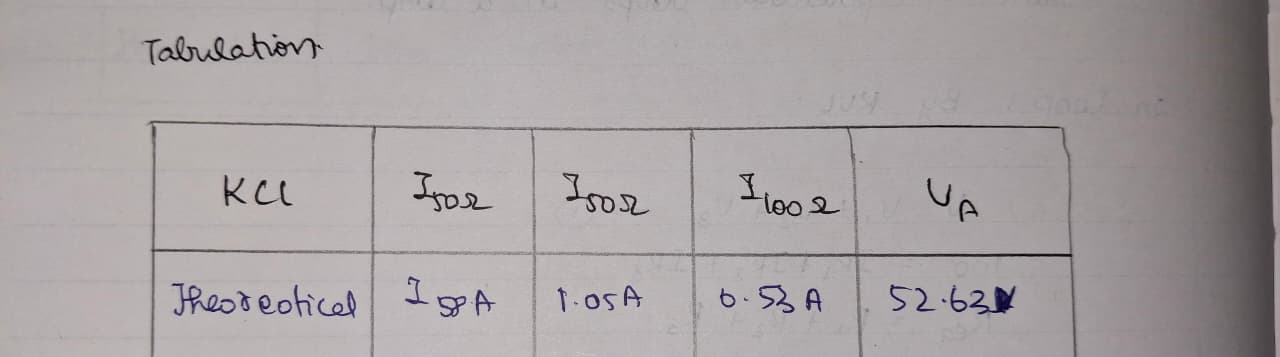 Tabulation
KCL I50Ω I50Ω I100Ω VA
Theoreotical I 58A 1.05A 0.53 A 52.63V